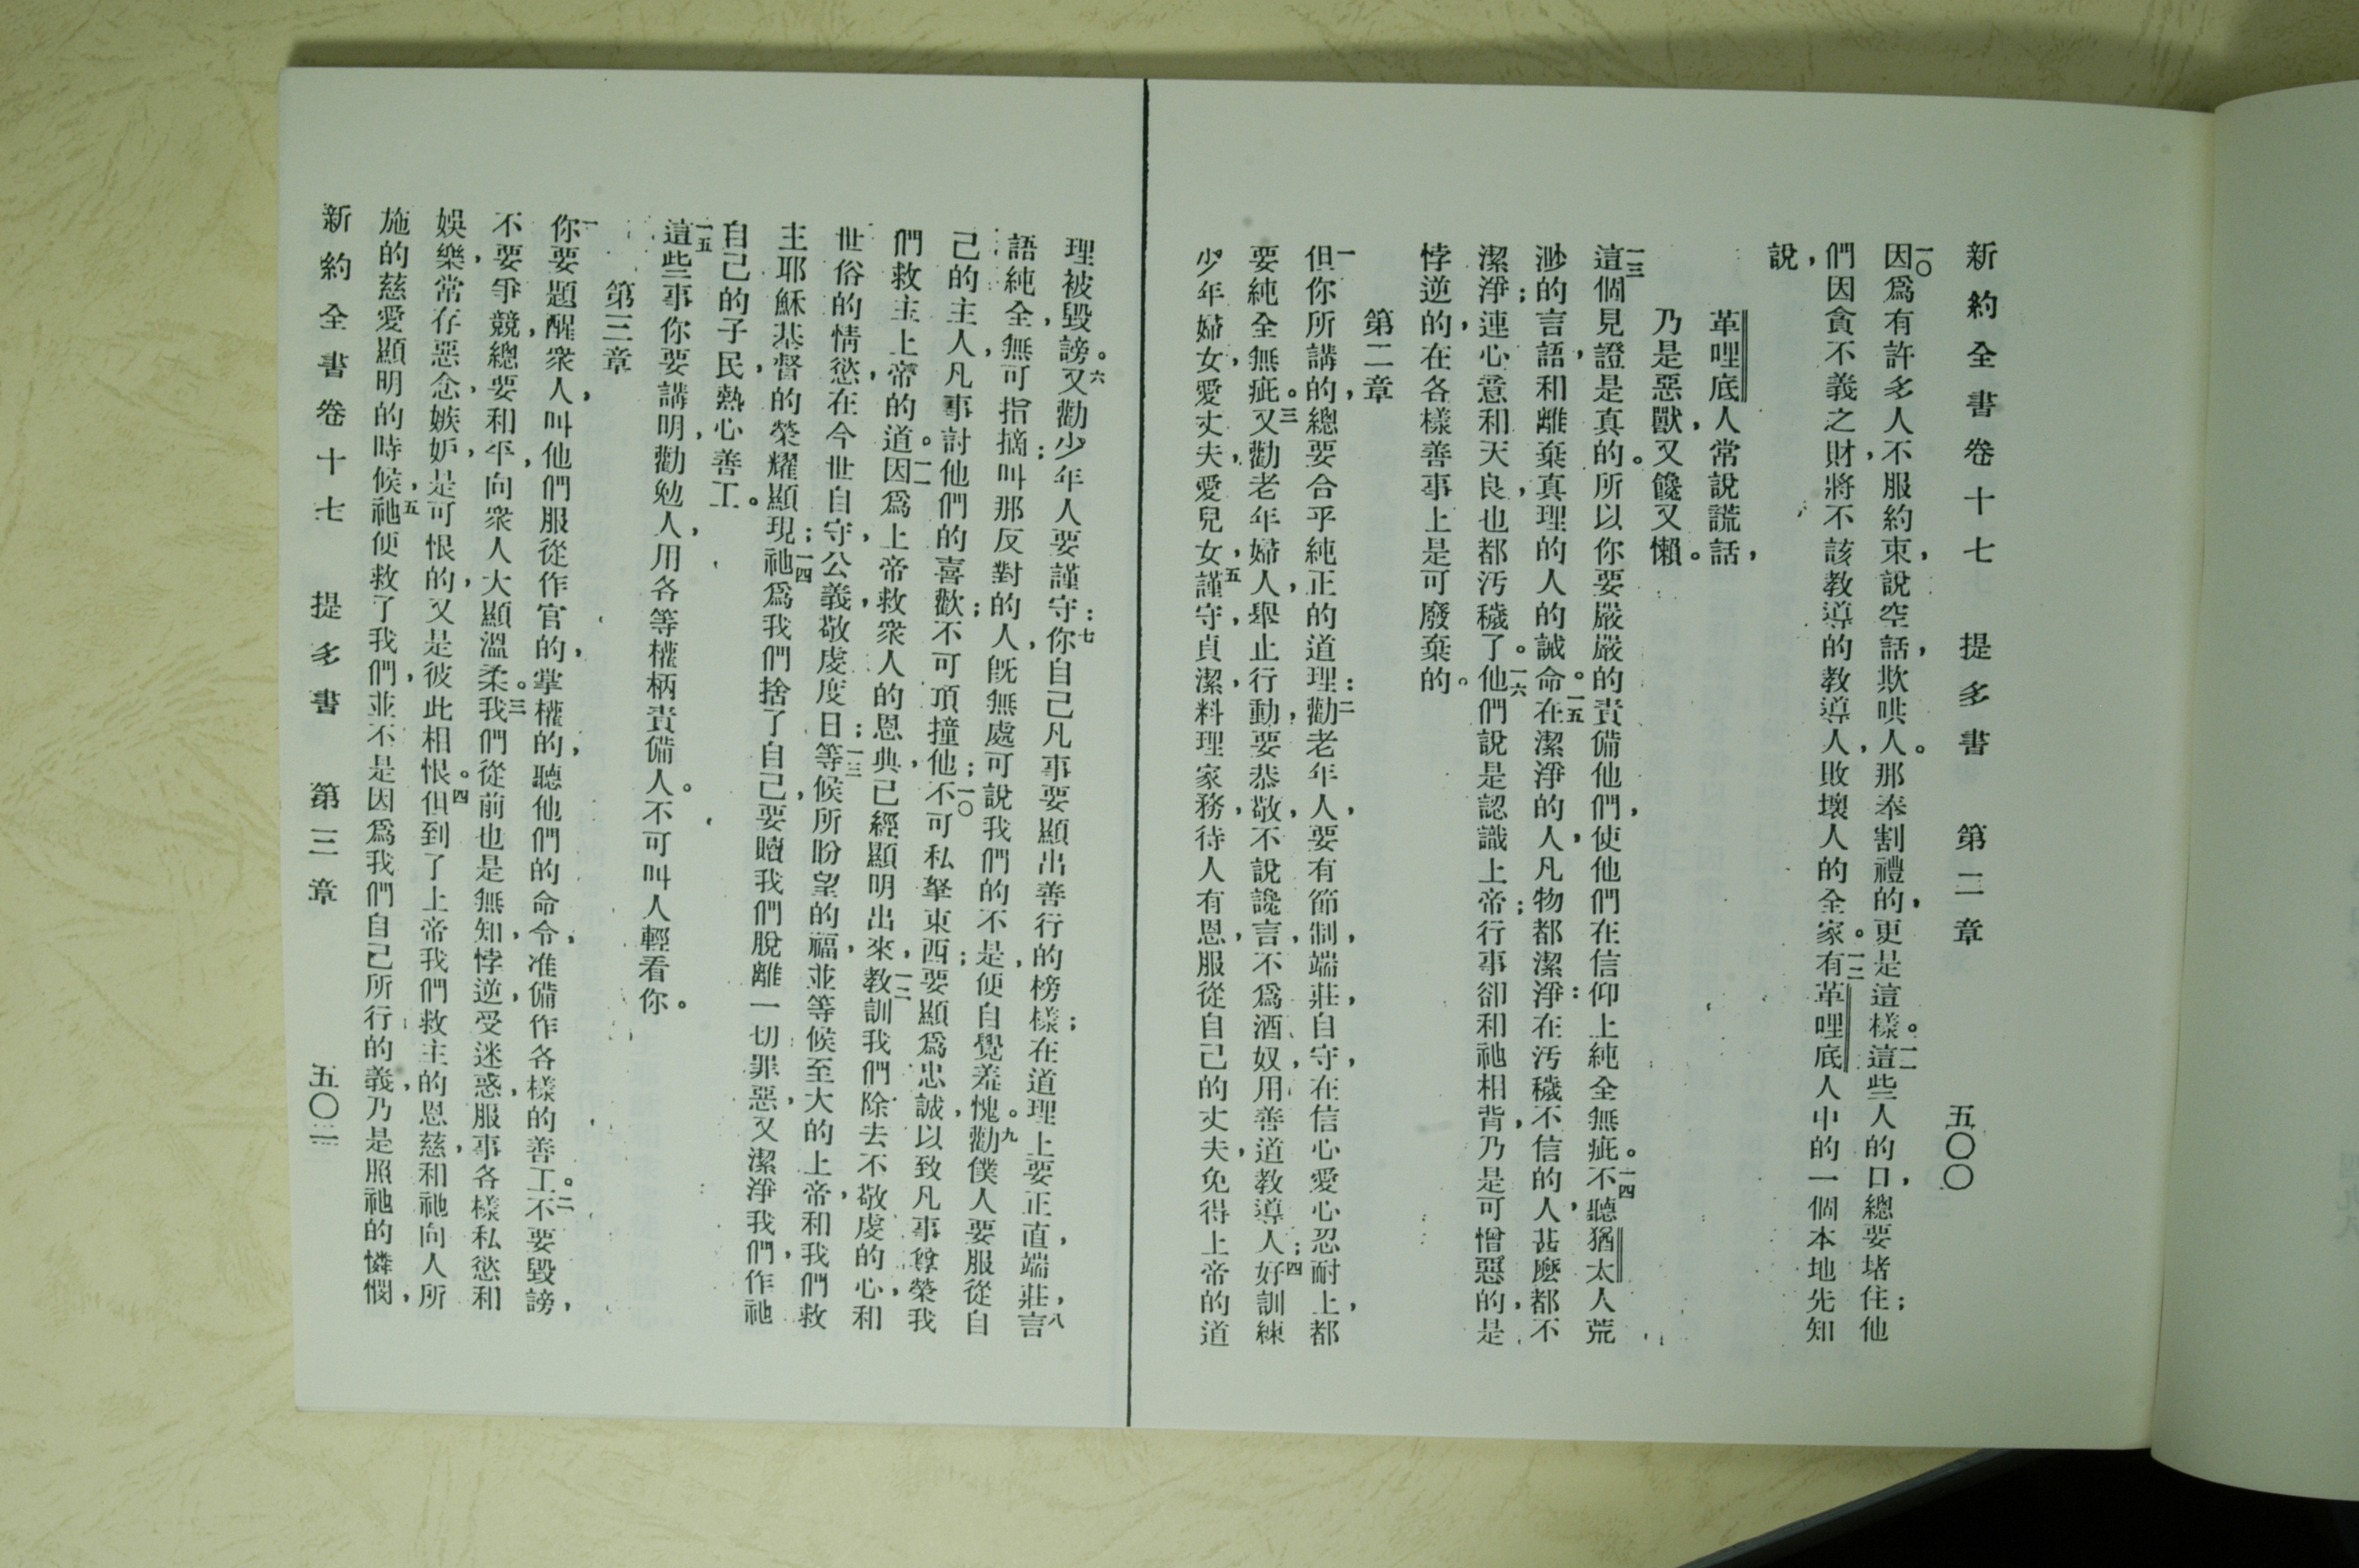 新約全書卷十七 提多書 第二章 五〇〇
一〇因爲有許多人不服約束，說空話，欺哄人。那奉割禮的，更是這樣。一一這些人的口，總要堵住；他
們因貪不義之財，將不該教導的教導人，敗壞人的全家。一二有革哩底人中的一個本地先知
說，
革哩底人常說謊話，
乃是惡獸，又饞又懶。
一三這個見證是真的。所以你要嚴嚴的責備他們，使他們在信仰上純全無疵。一四不聽猶太人荒
渺的言語，和離棄真理的人的誡命。一五在潔淨的人，凡物都潔淨：在污穢不信的人，甚麼都不
潔淨；連心意和天良，也都污穢了。一六他們說是認識上帝；行事卻和祂相背，乃是可憎惡的，是
悖逆的，在各樣善事上是可廢棄的。
第二章
一但你所講的，總要合乎純正的道理：二勸老年人，要有節制，端莊，自守，在信心愛心忍耐上，都
要純全無疵。三又勸老年婦人，舉止行動，要恭敬，不說讒言，不爲酒奴，用善道教導人；四好訓練
少年婦女，愛丈夫，愛兒女，五謹守，貞潔，料理家務，待人有恩，服從自己的丈夫，免得上帝的道
理被毀謗。六又勸少年人要謹守：七你自己凡事要顯出善行的榜樣；在道理上要正直，端莊，八言
語純全，無可指摘；叫那反對的人，旣無處可說我們的不是，便自覺羞愧。九勸僕人要服從自
己的主人，凡事討他們的喜歡；不可頂撞他；一〇不可私拏東西；要顯爲忠誠，以致凡事尊榮我
們救主上帝的道。一一因爲上帝救衆人的恩典，已經顯明出來，一二教訓我們除去不敬虔的心，和
世俗的情慾，在今世自守，公義，敬虔度日；一三等候所盼望的福，並等候至大的上帝，和我們救
主耶穌基督的榮耀顯現；一四祂爲我們捨了自己，要贖我們脫離一切罪惡，又潔淨我們，作祂
自己的子民，熱心善工。
一五這些事你要講明，勸勉人，用各等權柄責備人。不可叫人輕看你。
第三章
一你要題醒衆人，叫他們服從作官的，掌權的，聽他們的命令，准備作各樣的善工。二不要毀謗，
不要爭競，總要和平，向衆人大顯溫柔。三我們從前也是無知，悖逆，受迷惑，服事各樣私慾和
娛樂，常存惡念，嫉妒，是可恨的，又是彼此相恨。四但到了上帝我們救主的恩慈，和祂向人所
施的慈愛顯明的時候，五祂便救了我們，並不是因爲我們自己所行的義，乃是照祂的憐憫，
新約全書卷十七 提多書 第三章